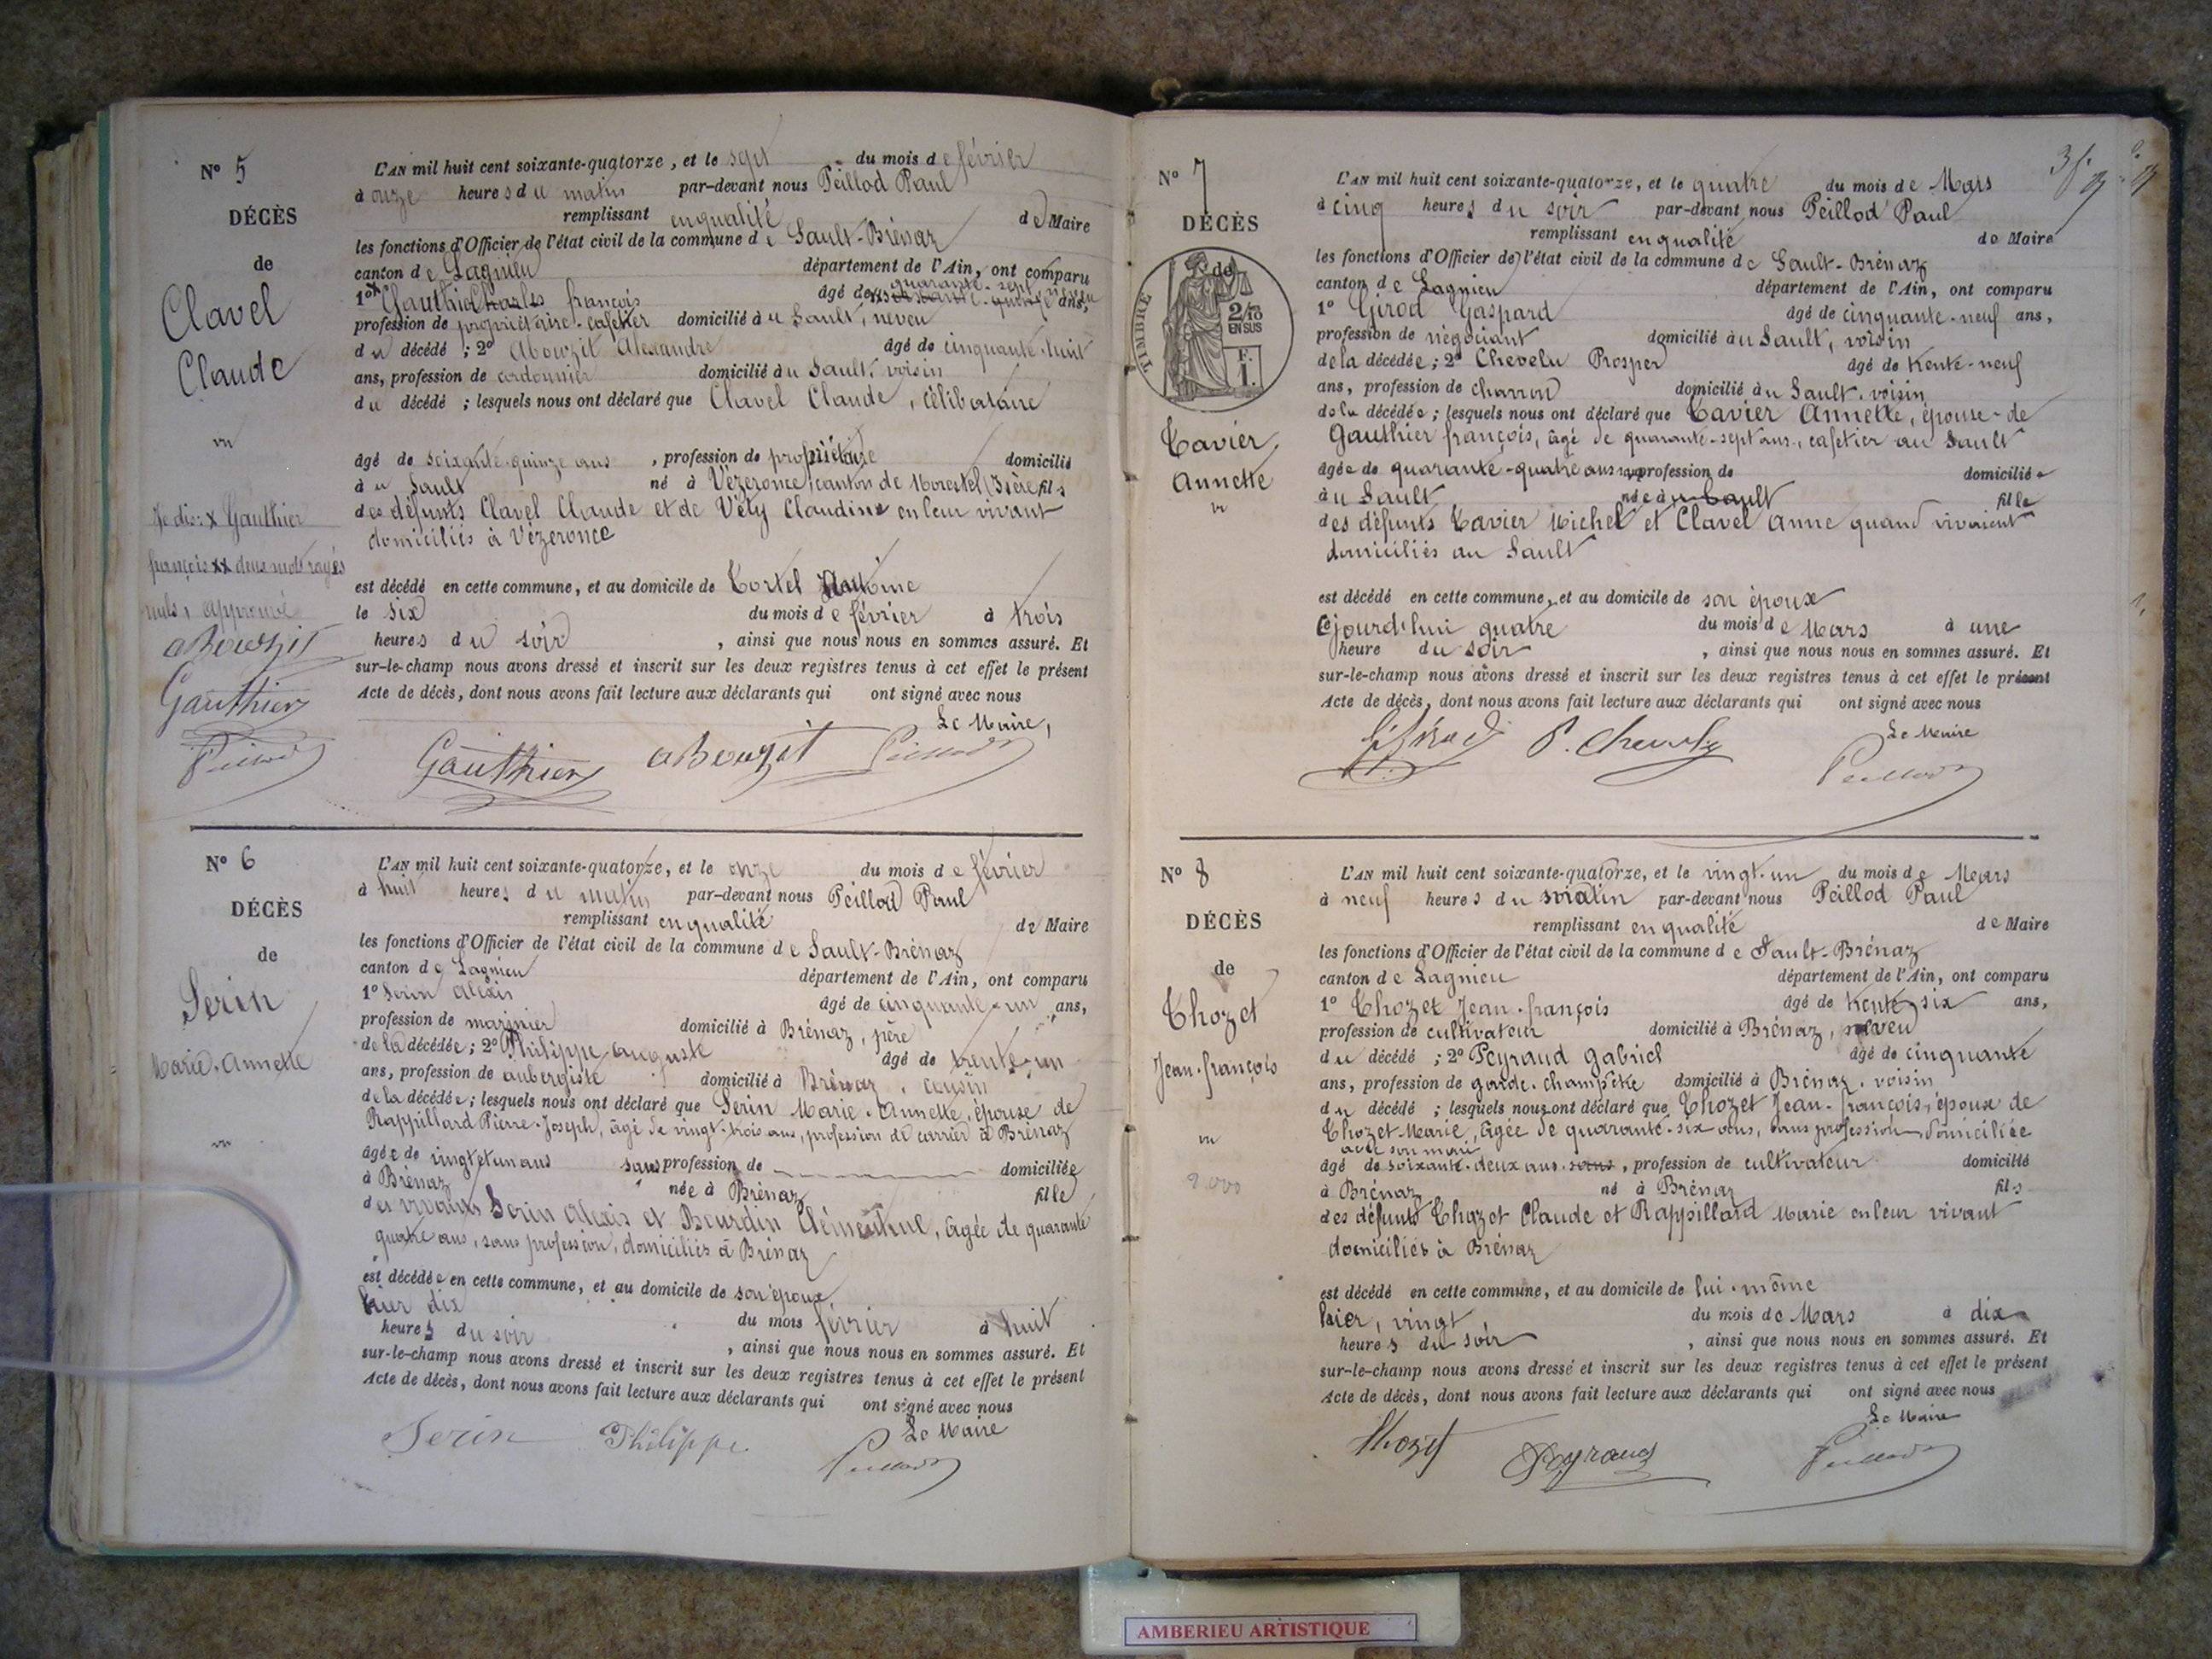 N° 5
DÉCÈS
de
Clavel
Claude
vu
Je dis: x Gauthier
françois xx deux mots rayés
nuls, approuvé
aBouzit
Gauthier
Peillod
L'AN mil huit cent soixante-quatorze, et le sept du mois de février
à onze heures du matin par-devant nous Peillod Paul
remplissant en qualité de Maire
les fonctions d'Officier de l'état civil de la commune de Sault-Brénaz
canton de Lagnieu département de l'Ain, ont comparu
1° Gauthier Charles françois âgé de quarante-sept ans,
profession de propriétaire-cafetier domicilié au Sault, neveu
du décédé ; 2° Abouzit Alexandre âgé de cinquante-huit
ans, profession de cordonnier domicilié au Sault, voisin
du décédé ; lesquels nous ont déclaré que Clavel Claude, célibataire
âgé de soixante-quinze ans , profession de propriétaire domicilié
au Sault né à Vézeronce, canton de Morestel (Isère fils
des défunts Clavel Claude et de Vély Claudine en leur vivant
domiciliés à Vézeronce
est décédé en cette commune, et au domicile de Tortel Antoine
le six du mois de février à trois
heures du soir , ainsi que nous nous en sommes assuré. Et
sur-le-champ nous avons dressé et inscrit sur les deux registres tenus à cet effet le présent
Acte de décès, dont nous avons fait lecture aux déclarants qui ont signé avec nous
Le Maire,
Gauthier aBouzit Peillod
N° 6
DÉCÈS
de
Serin
Marie-Annette
vu
L'AN mil huit cent soixante-quatorze, et le onze du mois de février
à huit heures du matin par-devant nous Peillod Paul
remplissant en qualité de Maire
les fonctions d'Officier de l'état civil de la commune de Sault-Brénaz
canton de Lagnieu département de l'Ain, ont comparu
1° Serin Alexis âgé de cinquante-un ans,
profession de marinier domicilié à Brénaz, père
de la décédée; 2° Philippe auguste âgé de trente-un
ans, profession de aubergiste domicilié à Brénaz, cousin
de la décédée; lesquels nous ont déclaré que Serin Marie-Annette, épouse de
Rappillard Pierre-Joseph, âgé de vingt-trois ans, profession de carrier à Brénaz
âgée de vingt et un ans sans profession de domiciliée
à Brénaz née à Brénaz fille
des vivants Serin Alexis et Bourdin Clémentine, âgée de quarante
quatre ans, sans profession, domiciliés à Brénaz
est décédée en cette commune, et au domicile de son époux
hier dix du mois février à huit
heures du soir , ainsi que nous nous en sommes assuré. Et
sur-le-champ nous avons dressé et inscrit sur les deux registres tenus à cet effet le présent
Acte de décès, dont nous avons fait lecture aux déclarants qui ont signé avec nous
Le Maire
Serin Philippe Peillod
N° 7
DÉCÈS
de
TIMBRE
2/10
EN SUS
F.
1.
Tavier
Annette
vu
L'AN mil huit cent soixante-quatorze, et le quatre du mois de Mars
à cinq heures du soir par-devant nous Peillod Paul
remplissant en qualité de Maire
les fonctions d'Officier de l'état civil de la commune de Sault-Brénaz
canton de Lagnieu département de l'Ain, ont comparu
1° Girod Gaspard âgé de cinquante-neuf ans,
profession de négociant domicilié au Sault, voisin
de la décédée; 2° Chevelu Prosper âgé de trente-neuf
ans, profession de charron domicilié au Sault, voisin
de la décédée; lesquels nous ont déclaré que Tavier Annette, épouse de
Gauthier françois, âgé de quarante-sept ans, cafetier au Sault
âgée de quarante-quatre ans profession de domiciliée
au Sault née au Sault fille
des défunts Tavier Michel et Clavel Anne quand vivaient
domiciliés au Sault
est décédé en cette commune, et au domicile de son époux
cejourd'hui quatre du mois de Mars à une
heure du soir , ainsi que nous nous en sommes assuré. Et
sur-le-champ nous avons dressé et inscrit sur les deux registres tenus à cet effet le présent
Acte de décès, dont nous avons fait lecture aux déclarants qui ont signé avec nous
Le Maire
G. Girod P. Chevelu Peillod
N° 8
DÉCÈS
de
Thozet
Jean-françois
vu
L'AN mil huit cent soixante-quatorze, et le vingt-un du mois de Mars
à neuf heures du matin par-devant nous Peillod Paul
remplissant en qualité de Maire
les fonctions d'Officier de l'état civil de la commune de Sault-Brénaz
canton de Lagnieu département de l'Ain, ont comparu
1° Thozet Jean-françois âgé de trente-six ans,
profession de cultivateur domicilié à Brénaz, neveu
du décédé ; 2° Peyraud Gabriel âgé de cinquante
ans, profession de garde-champêtre domicilié à Brénaz, voisin
du décédé ; lesquels nous ont déclaré que Thozet Jean-françois, époux de
Thozet Marie, âgée de quarante-six ans, sans profession, domiciliée
avec son mari
âgé de soixante-deux ans , profession de cultivateur domicilié
à Brénaz né à Brénaz fils
des défunts Thozet Claude et Rappillard Marie en leur vivant
domiciliés à Brénaz
est décédé en cette commune, et au domicile de lui-même
hier, vingt du mois de Mars à dix
heures du soir , ainsi que nous nous en sommes assuré. Et
sur-le-champ nous avons dressé et inscrit sur les deux registres tenus à cet effet le présent
Acte de décès, dont nous avons fait lecture aux déclarants qui ont signé avec nous
Le Maire
Thozet Peyraud Peillod
AMBERIEU ARTISTIQUE